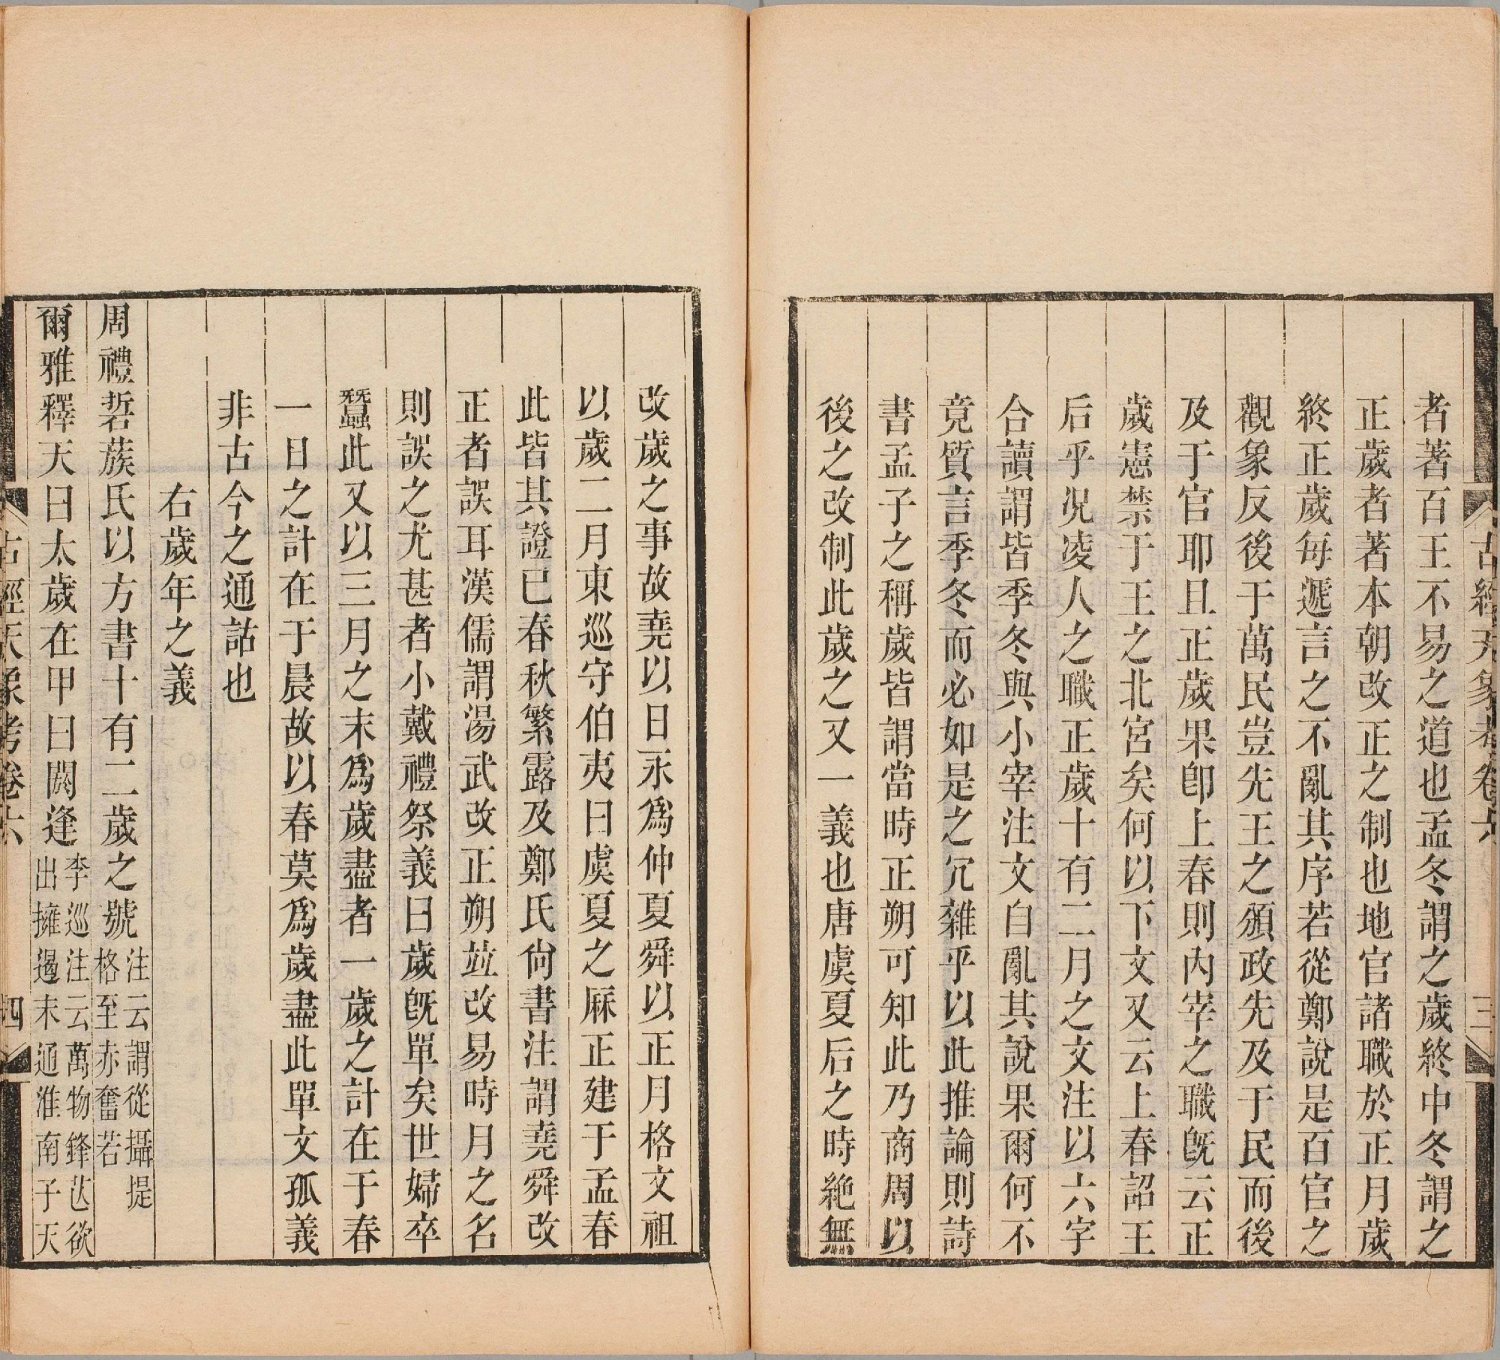 古經天象考卷六
三
者著百王不易之道也孟冬謂之歲終中冬謂之
正歲者著本朝改正之制也地官諸職於正月歲
終正歲每遞言之不亂其序若從鄭說是百官之
觀象反後于萬民豈先王之頒政先及于民而後
及于官耶且正歲果卽上春則內宰之職旣云正
歲憲禁于王之北宮矣何以下文又云上春詔王
后乎況凌人之職正歲十有二月之文注以六字
合讀謂皆季冬與小宰注文自亂其說果爾何不
竟質言季冬而必如是之冗雜乎以此推論則詩
書孟子之稱歲皆謂當時正朔可知此乃商周以
後之改制此歲之又一義也唐虞夏后之時絶無
改歲之事故堯以日永爲仲夏舜以正月格文祖
以歲二月東巡守伯夷曰虞夏之厤正建于孟春
此皆其證已春秋繁露及鄭氏尙書注謂堯舜改
正者誤耳漢儒謂湯武改正朔竝改易時月之名
則誤之尤甚者小戴禮祭義曰歲旣單矣世婦卒
蠶此又以三月之末爲歲盡者一歲之計在于春
一日之計在于晨故以春莫爲歲盡此單文孤義
非古今之通詁也
右歲年之義
周禮硩蔟氏以方書十有二歲之號注云謂從攝提格至赤奮若
爾雅釋天曰太歲在甲曰閼逢李巡注云萬物鋒芒欲出擁遏未通淮南子天
古經天象考卷六
四